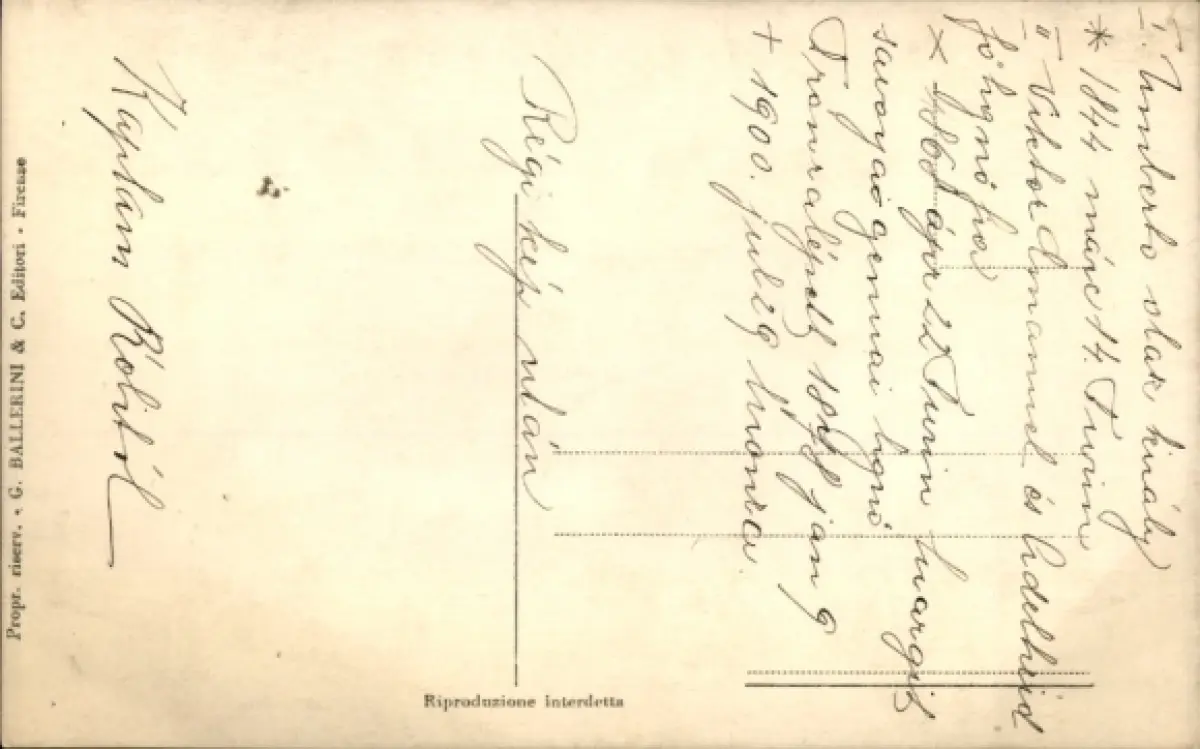 I. Umberto olasz király
* 1844 márc 14. Turin
II Viktor Emanuel és Adelheid
főhgnő fia
× 1868 ápr 22 Turin Margit
savoyai genuai hgnő
Trónralépett 1878 jan 9
+ 1900. jul 29 Monza
Régi kép után
Kaptam Rólitól
Propr. riserv. • G. BALLERINI & C. Editori - Firenze
Riproduzione interdetta